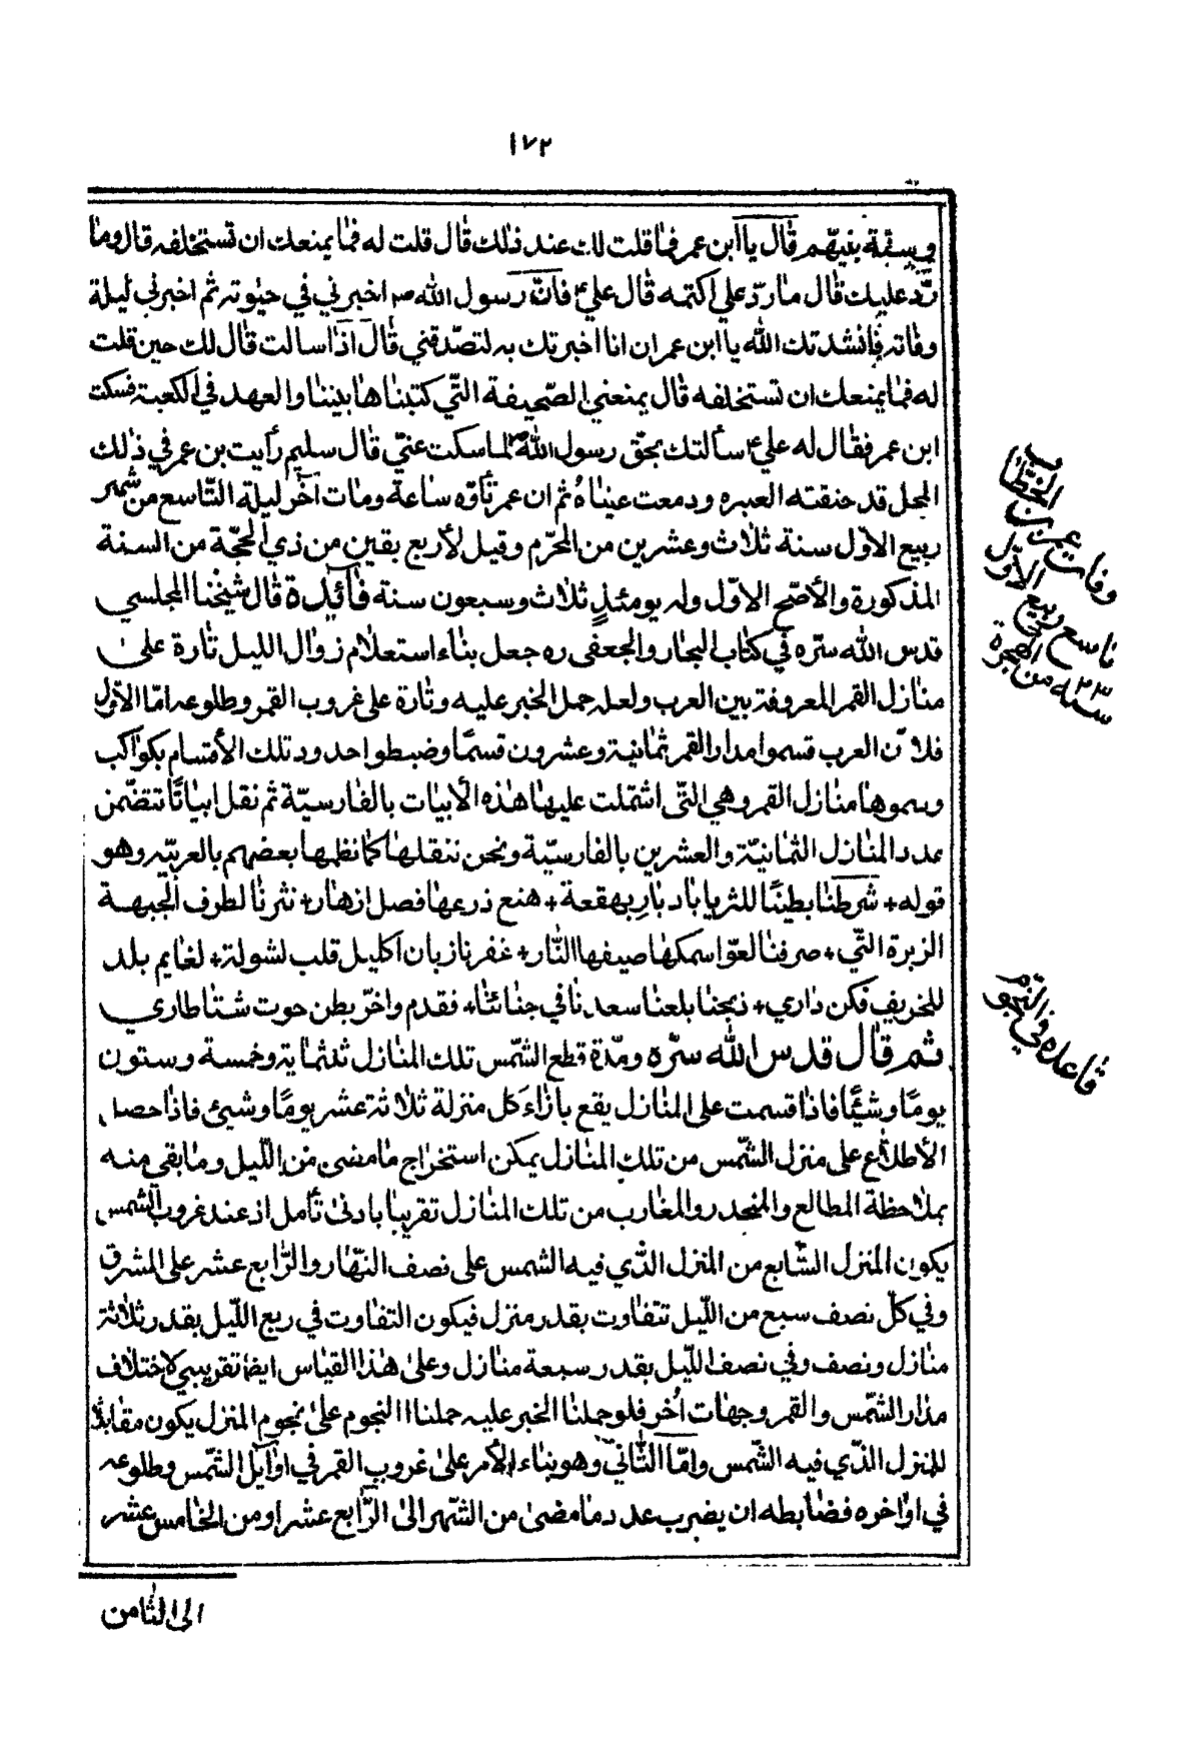 ١٧٢
وسنة نبيهم قال يا ابن عمر فما قلت لك عند ذلك قال قلت له فما يمنعك ان تستخلفه قال وما
ردّ عليك قال ما ردّ علي اكتمه قال علي ع فانّ رسول الله ص اخبرني في حيوته ثم اخبرني ليلة
وفاته فانشدتك الله يا ابن عمر ان انا اخبرتك به لتصدّقني قال اذا سالت قال لك حين قلت
له فما يمنعك ان تستخلفه قال يمنعني الصّحيفة الّتي كتبناها بيننا والعهد في الكعبة فسكت
ابن عمر فقال له علي ع سألتك بحقّ رسول الله ص لما سكت عنّي قال سليم رأيت بن عمر في ذلك
المجل قد خنقته العبره ودمعت عيناهُ ثم ان عمر تأوّه ساعة ومات آخر ليلة التّاسع من شهر
ربيع الاوّل سنة ثلاث وعشرين من المحرّم وقيل لأربع بقين من ذي الحجّة من السنة
المذكورة والأصّح الاوّل وله يومئذٍ ثلاث وسبعون سنة فآئدة قال شيخنا المجلسي
قدس الله سرّه في كتاب البحار والجعفى ره جعل بناء استعلام زوال الليل تارة على
منازل القمر المعروفة بين العرب ولعله حمل الخبر عليه وتارة على غروب القمر وطلوعه امّا الاوّل
فلانّ العرب قسموا مدار القمر ثمانية وعشرون قسمًا وضبطوا حدود تلك الأقسام بكواكب
وسموها منازل القمر وهي الّتي اشتملت عليها هذه الأبيات بالفارسيّة ثم نقل ابياتًا تتضمّن
عدد المنازل الثمانيّة والعشرين بالفارسيّة ونحن ننقلها كما نظمها بعضهم بالعربيّه وهو
قوله + شرطنا بطينًا للثريا بادبار بهقعة + هنع ذرعها فصل ازهار + نثرنا لطرف الجبهة
الزبرة الّتي + صرفنا لعوّا سمكها صيفها النّار + غفرنا زبان اكليل قلب لشولة + لغايم بلد
للخريف فكن داري + ذبحنا بلعنا سعد نا في جنائنا + فقدم واخّر بطن حوت شتا طاري
ثم قال قدس الله سرّه ومدّة قطع الشّمس تلك المنازل ثلثمائة وخمسة وستون
يومًا وشيئًا فاذا قسمت على المنازل يقع بازاء كل منزلة ثلاثة عشر يومًا وشيئ فاذا حصل
الأطلاع على منزل الشّمس من تلك المنازل يمكن استخراج ما مضى من اللّيل وما بقى منه
بملاحظة المطالع والمنحدر والمغارب من تلك المنازل تقريبًا بادنى تأمل اذ عند غروب الشمس
يكون المنزل السّابع من المنزل الّذي فيه الشمس على نصف النّهار والرّابع عشر على المشرق
وفي كلّ نصف سبع من اللّيل تتفاوت بقدر منزل فيكون التفاوت في ربع اللّيل بقدر ثلاثة
منازل ونصف وفي نصف اللّيل بقدر سبعة منازل وعلى هذا القياس ايضا تقريبي لاختلاف
مدار الشّمس والقمر وجهات اُخر فلو حملنا الخبر عليه حملنا النجوم على نجوم المنزل يكون مقابلًا
للمنزل الّذي فيه الشّمس وامّا الثّاني وهو بناء الأمر على غروب القمر في اوايل الشّمس وطلوعه
في اواخره فضابطه ان يضرب عدد ما مضى من الشّهر الى الرّابع عشر او من الخامس عشر
الى الثامن
وفات عمر بن الخطّاب
تاسع ربيع الاوّل
سنه ٢٣ من الهجرة
قاعده في النجوم